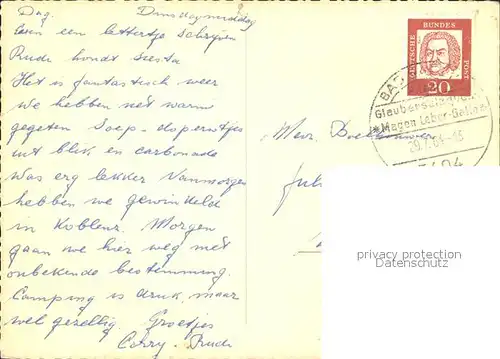 Dag. Dinsdagmiddag
Even een lettertje schrijven
Rudi houdt siesta
Het is fantastisch weer
we hebben net warm
gegeten Soep - doperwtjes
uit blik en carbonade
Was erg lekker Vanmorgen
hebben we gewinkeld
in Koblenz. Morgen
gaan we hier weg met
onbekende bestemming.
Camping is druk, maar
wel gezellig. Groetjes
Corry - Rudi
Mevr.
DEUTSCHE BUNDES POST
20
BAD
Magen-Leber-Galle
29.7.64-15
5404
privacy protection
Datenschutz